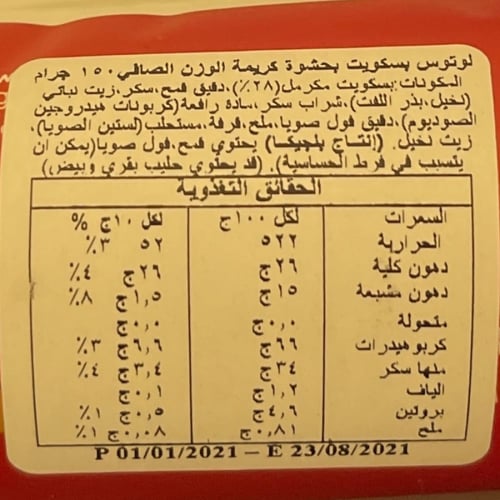 لوتوس بسكويت بحشوة كريمة الوزن الصافي ١٥٠ جرام
المكونات:بسكويت مكرمل(٢٨٪)،دقيق قمح،سكر،زيت نباتي
(نخيل،بذر اللفت)،شراب سكر،مادة رافعة(كربونات هيدروجين
الصوديوم)،دقيق فول صويا،ملح،قرفة،مستحلب(لستين الصويا)،
زيت نخيل. (إنتاج بلجيكا) يحتوي قمح،فول صويا(يمكن ان
يتسبب في فرط الحساسية). (قد يحتوي حليب بقري وبيض)
الحقائق التغذوية
السعرات لكل ١٠٠ج لكل ١٠ج %
الحرارية ٥٢٢ ٥٢ ٣٪
دهون كلية ٢٦ج ٢٦ج ٤٪
دهون مشبعة ١٥ج ١,٥ج ٨٪
متحولة ٠,٠ج ٠,٠ج
كربوهيدرات ٦٦ج ٦,٦ج ٣٪
منها سكر ٣٤ج ٣,٤ج ٤٪
الياف ١,٢ج ٠,١ج
بروتين ٤,٦ج ٠,٥ج ١٪
ملح ٠,٨١ج ٠,٠٨ج ١٪
P 01/01/2021 – E 23/08/2021